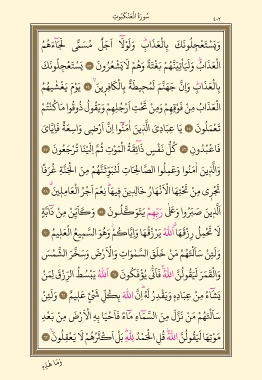 سُورَةُ الْعَنْكَبُوتِ
٤٠٢
وَيَسْتَعْجِلُونَكَ بِالْعَذَابِ وَلَوْلَا اَجَلٌ مُسَمًّى لَجَاءَهُمُ
الْعَذَابُ وَلَيَأْتِيَنَّهُمْ بَغْتَةً وَهُمْ لَا يَشْعُرُونَ ﴿٥٣﴾ يَسْتَعْجِلُونَكَ
بِالْعَذَابِ وَاِنَّ جَهَنَّمَ لَمُحِيطَةٌ بِالْكَافِرِينَ ﴿٥٤﴾ يَوْمَ يَغْشٰيهُمُ
الْعَذَابُ مِنْ فَوْقِهِمْ وَمِنْ تَحْتِ اَرْجُلِهِمْ وَيَقُولُ ذُوقُوا مَا كُنْتُمْ
تَعْمَلُونَ ﴿٥٥﴾ يَا عِبَادِيَ الَّذِينَ اٰمَنُوا اِنَّ اَرْضِي وَاسِعَةٌ فَاِيَّايَ
فَاعْبُدُونِ ﴿٥٦﴾ كُلُّ نَفْسٍ ذَائِقَةُ الْمَوْتِ ثُمَّ اِلَيْنَا تُرْجَعُونَ ﴿٥٧﴾
وَالَّذِينَ اٰمَنُوا وَعَمِلُوا الصَّالِحَاتِ لَنُبَوِّئَنَّهُمْ مِنَ الْجَنَّةِ غُرَفًا
تَجْرِي مِنْ تَحْتِهَا الْاَنْهَارُ خَالِدِينَ فِيهَا نِعْمَ اَجْرُ الْعَامِلِينَ ﴿٥٨﴾
اَلَّذِينَ صَبَرُوا وَعَلٰى رَبِّهِمْ يَتَوَكَّلُونَ ﴿٥٩﴾ وَكَاَيِّنْ مِنْ دَابَّةٍ
لَا تَحْمِلُ رِزْقَهَا اَللّٰهُ يَرْزُقُهَا وَاِيَّاكُمْ وَهُوَ السَّمِيعُ الْعَلِيمُ ﴿٦٠﴾
وَلَئِنْ سَاَلْتَهُمْ مَنْ خَلَقَ السَّمٰوَاتِ وَالْاَرْضَ وَسَخَّرَ الشَّمْسَ
وَالْقَمَرَ لَيَقُولُنَّ اللّٰهُ فَاَنّٰى يُؤْفَكُونَ ﴿٦١﴾ اَللّٰهُ يَبْسُطُ الرِّزْقَ لِمَنْ
يَشَاءُ مِنْ عِبَادِهِ وَيَقْدِرُ لَهُ اِنَّ اللّٰهَ بِكُلِّ شَيْءٍ عَلِيمٌ ﴿٦٢﴾ وَلَئِنْ
سَاَلْتَهُمْ مَنْ نَزَّلَ مِنَ السَّمَاءِ مَاءً فَاَحْيَا بِهِ الْاَرْضَ مِنْ بَعْدِ
مَوْتِهَا لَيَقُولُنَّ اللّٰهُ قُلِ الْحَمْدُ لِلّٰهِ بَلْ اَكْثَرُهُمْ لَا يَعْقِلُونَ ﴿٦٣﴾
وَمَا هٰذِهِ